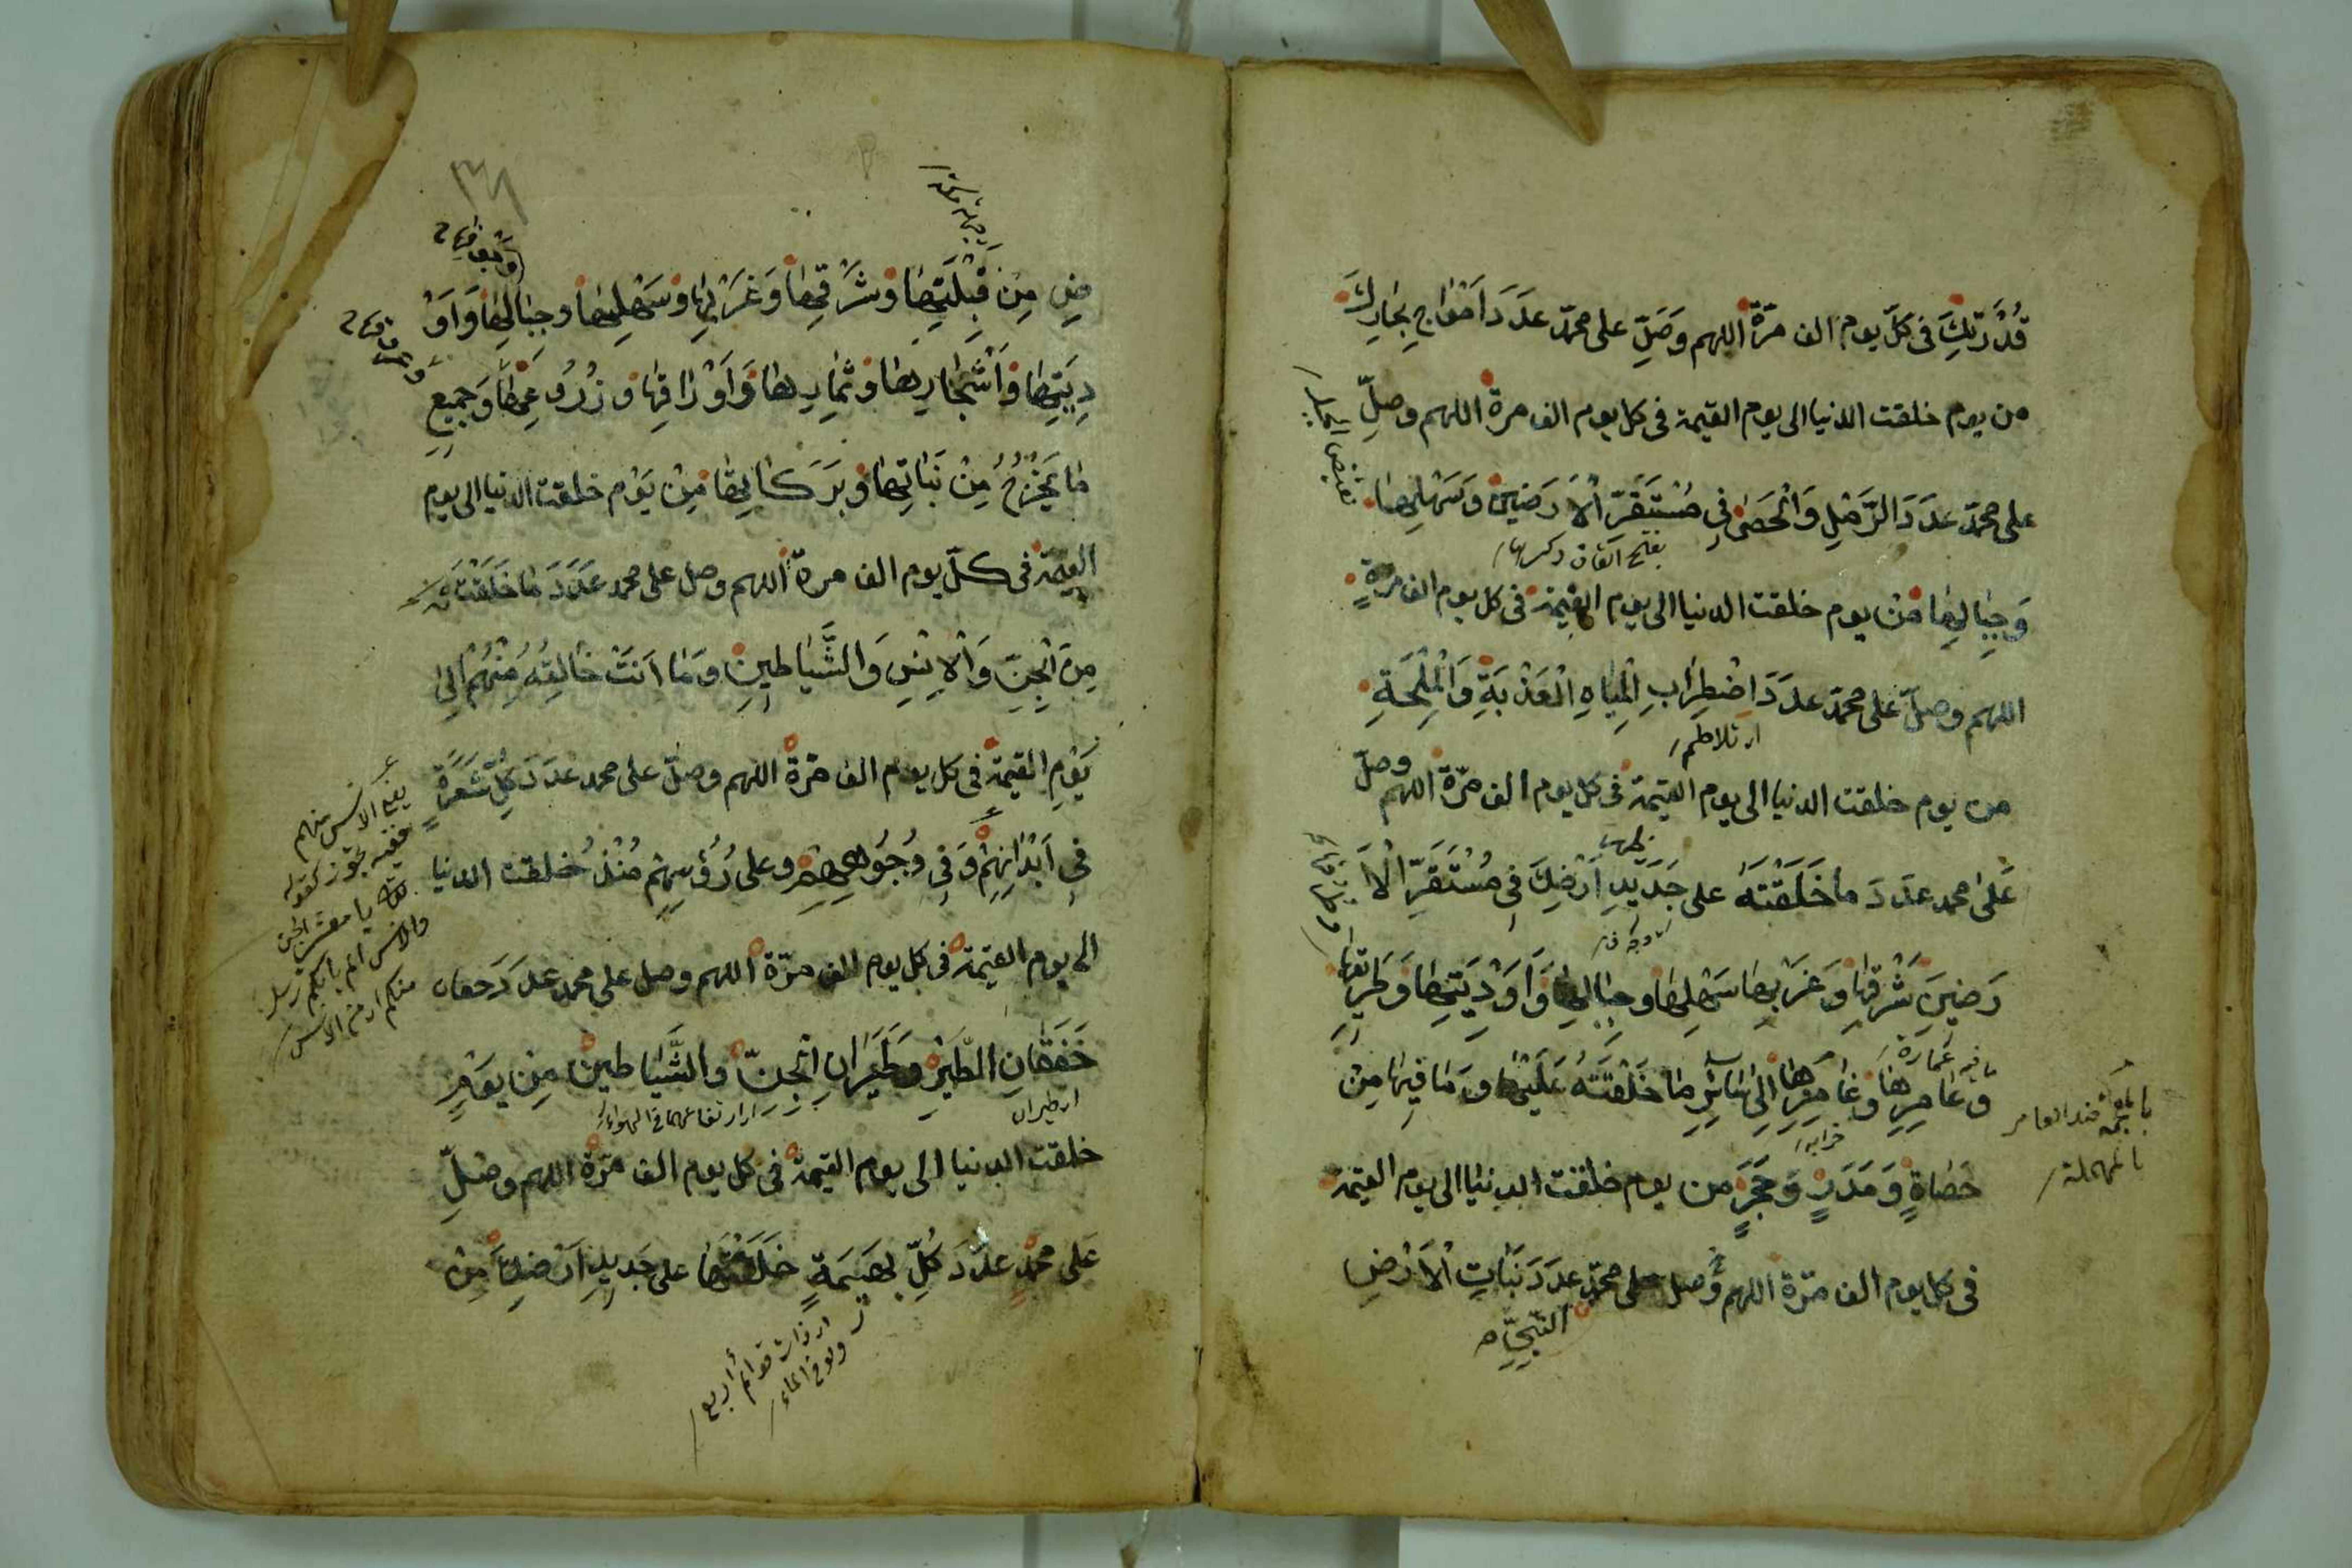 قُدْرَتِكَ فى كلّ يوم الف مرّة اللهم وَصَلِّ على محمّد عدَدَ اَمْوَاجِ بِحَارِكَ
من يوم خلقت الدنيا الى يوم القيمة فى كل يوم الف مرة اللهم وصلِّ
على محمّد عدَدَ الرَّمْلِ وَالْحَصٰى فِى مُسْتَقَرِّ الْاَرَضِينَ وَسَهْلِهَا
بفتح القاف وكسرها
وَجِبَالِهَا مِنْ يوم خلقت الدنيا الى يوم القيمة فى كل يوم الف مرةٍ
اللهم وصلّ على محمّد عدَدَ اضْطِرَابِ الْمِيَاهِ الْعَذْبَةِ وَالْمِلْحَةِ
اى تلاطم
من يوم خلقت الدنيا الى يوم القيمة فى كل يوم الف مرّة اللهم وصلّ
عَلىٰ محمد عدَدَ ما خَلَقْتَهُ على جَدِيدِ اَرْضِكَ فِى مُسْتَقَرِّ الْاَ
رَضِينَ شَرْقِهَا وَغَرْبِهَا سَهْلِهَا وجِبَالِهَا وَاَوْدِيَتِهَا وَطَرِيقِهَا
وعَامِرِهَا وغَامِرِهَا اِلٰى سَائِرِ مَا خَلَقْتَهُ عَلَيْهَا ومَا فِيهَا مِنْ
حَصَاةٍ وَمَدَرٍ وَحَجَرٍ من يوم خلقت الدنيا الى يوم القيمة
فى كل يوم الف مرّة اللهم وصل على محمّدٍ عدَدَ نَبَاتِ الْاَرْضِ
النَّبِيِّ
بالمهملة
٣٦٨
ضِ مِنْ قِبْلَتِهَا وشَرْقِهَا وَغَرْبِهَا وسَهْلِهَا وجِبَالِهَا وَاَوْ
دِيَتِهَا وَاَشْجَارِهَا وثِمَارِهَا وَاَوْرَاقِهَا وزُرُوعِهَا وَجَمِيعِ
مَا يَخْرُجُ مِنْ نَبَاتِهَا وبَرَكَاتِهَا مِنْ يَوْم خلقت الدنيا الى يوم
القيمة فى كلّ يوم الف مرة اللهم وصل على محمد عَدَدَ مَا خَلَقْتَهُ
مِنَ الْجِنِّ وَالْاِنْسِ وَالشَّيَاطِينِ ومَا اَنتَ خَالِقُهُ مِنْهُمْ اِلى
يَوْمِ القيمة فى كل يوم الف مرّة اللهم وصلّ على محمد عدَدَ كُلِّ شَعَرَةٍ
فى اَبْدَانِهِمْ وَفِى وُجُوهِهِمْ وعلى رُؤُسِهِمْ مُنْذُ خلقت الدنيا
الى يوم القيمة فى كل يوم الف مرّة اللهم وصل على محمد عدَدَ خفقان
خَفَقَانِ الطَّيْرِ وطَيَرَانِ الْجِنّ والشَّيَاطين مِن يوَمِ
اى طيران
خلقت الدنيا الى يوم القيمة فى كل يوم الف مرّة اللهم وصَلِّ
عَلى محمّدٍ عدَدَ كُلِّ بَهِيمَةٍ خَلَقْتَهَا على جَدِيدِ اَرْضِكَ مِنْ
اى ذات قوائم أربع
ولو فى الماء
يا معشر الجن
والانس الم ياتكم رسل
منكم اى من الانس